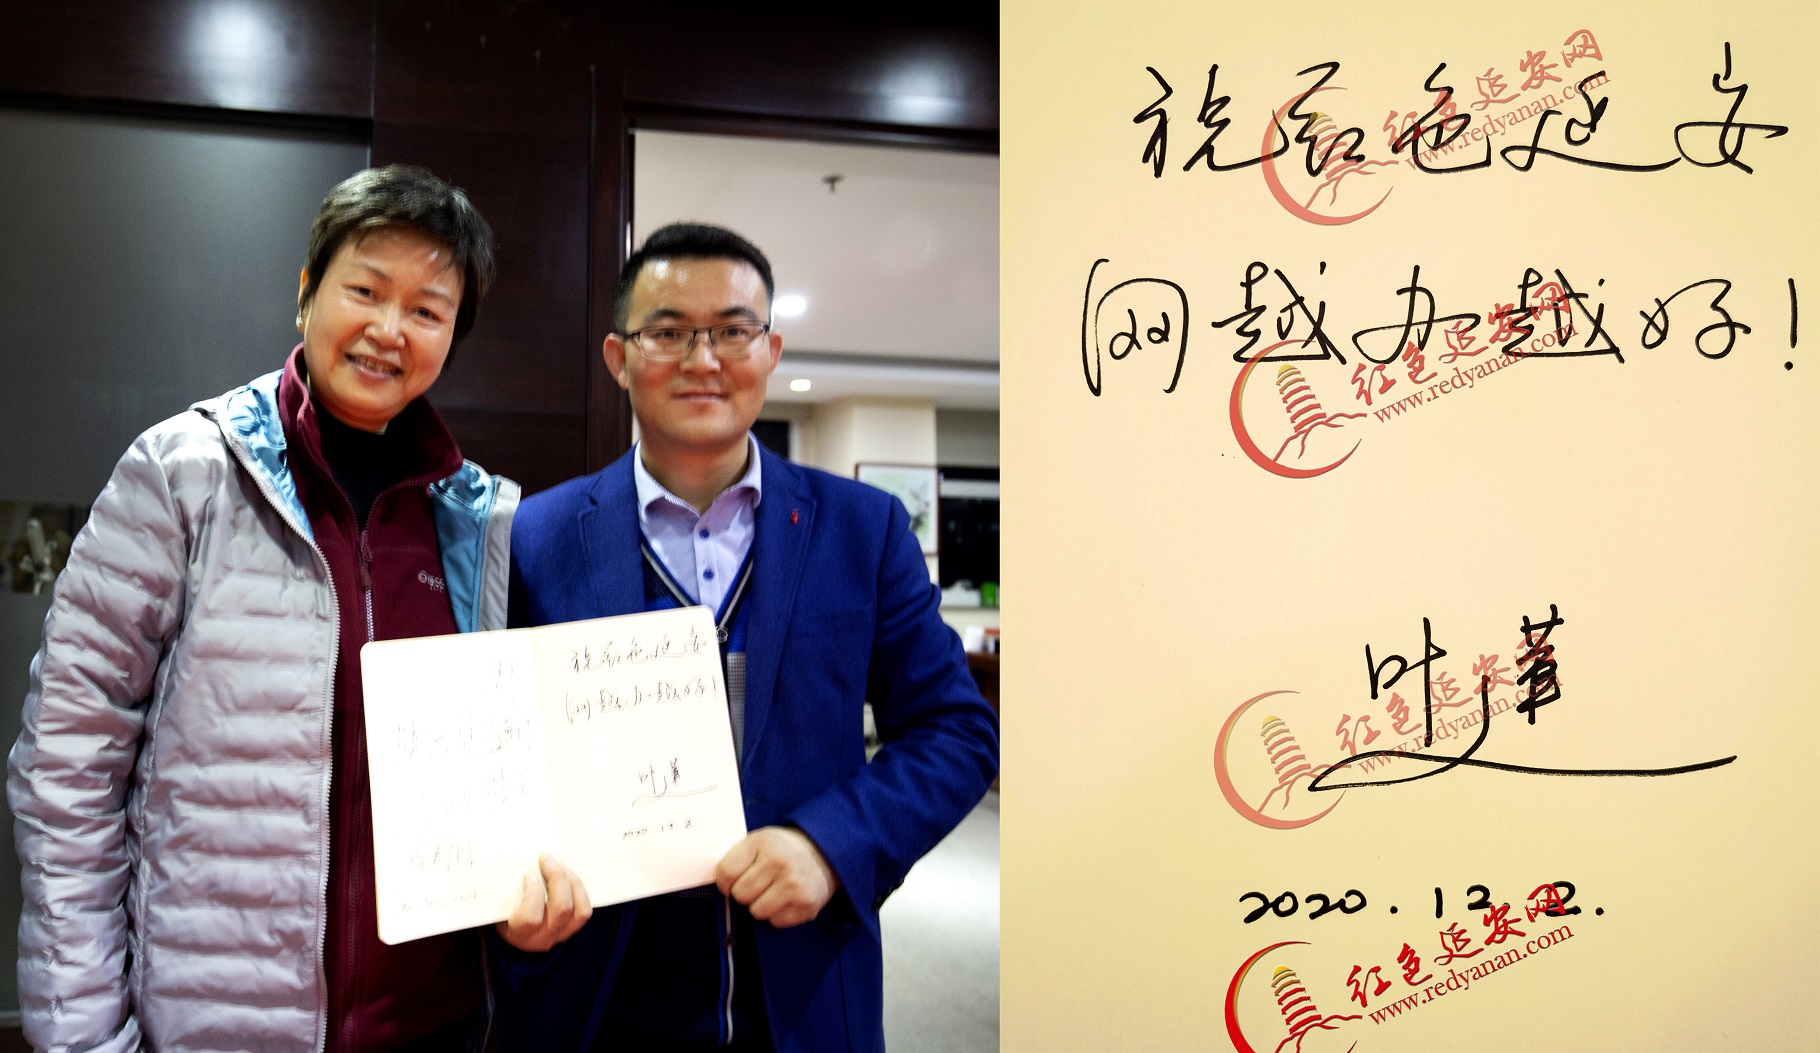 祝红色延安
网越办越好!
叶
2020.12.2.
祝红色延安
网越办越好!
叶
2020.12.2.
红色延安网
www.redyanan.com
红色延安网
www.redyanan.com
红色延安网
www.redyanan.com
红色延安网
www.redyanan.com